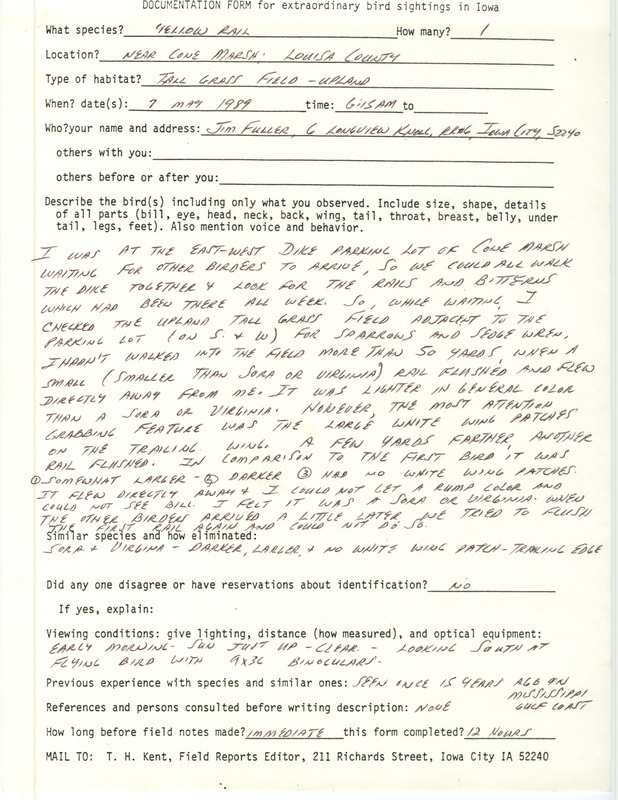 DOCUMENTATION FORM for extraordinary bird sightings in Iowa
What species? YELLOW RAIL How many? 1
Location? NEAR CONE MARSH - LOUISA COUNTY
Type of habitat? TALL GRASS FIELD - UPLAND
When? date(s): 7 MAY 1989 time: 6:15 AM to
Who? your name and address: JIM FULLER, 6 LONGVIEW KNOLL, RR#6, IOWA CITY, 52240
others with you:
others before or after you:
Describe the bird(s) including only what you observed. Include size, shape, details
of all parts (bill, eye, head, neck, back, wing, tail, throat, breast, belly, under
tail, legs, feet). Also mention voice and behavior.
I WAS AT THE EAST-WEST DIKE PARKING LOT OF CONE MARSH
WAITING FOR OTHER BIRDERS TO ARRIVE, SO WE COULD ALL WALK
THE DIKE TOGETHER & LOOK FOR THE RAILS AND BITTERNS
WHICH HAD BEEN THERE ALL WEEK. SO, WHILE WAITING, I
CHECKED THE UPLAND TALL GRASS FIELD ADJACENT TO THE
PARKING LOT (ON S. & W) FOR SPARROWS AND SEDGE WREN.
I HADN'T WALKED INTO THE FIELD MORE THAN 50 YARDS, WHEN A
SMALL (SMALLER THAN SORA OR VIRGINIA) RAIL FLUSHED AND FLEW
DIRECTLY AWAY FROM ME. IT WAS LIGHTER IN GENERAL COLOR
THAN A SORA OR VIRGINIA. HOWEVER, THE MOST ATTENTION
GRABBING FEATURE WAS THE LARGE WHITE WING PATCHES
ON THE TRAILING WING. A FEW YARDS FARTHER, ANOTHER
RAIL FLUSHED. IN COMPARISON TO THE FIRST BIRD IT WAS
① SOMEWHAT LARGER - ② DARKER ③ HAD NO WHITE WING PATCHES.
IT FLEW DIRECTLY AWAY & I COULD NOT GET A RUMP COLOR AND
COULD NOT SEE BILL. I FELT IT WAS A SORA OR VIRGINIA. WHEN
THE OTHER BIRDERS ARRIVED A LITTLE LATER WE TRIED TO FLUSH
THE FIRST RAIL AGAIN AND COULD NOT DO SO.
Similar species and how eliminated:
SORA & VIRGINIA - DARKER, LARGER, & NO WHITE WING PATCH - TRAILING EDGE
Did any one disagree or have reservations about identification? NO
If yes, explain:
Viewing conditions: give lighting, distance (how measured), and optical equipment:
EARLY MORNING - SUN JUST UP - CLEAR - LOOKING SOUTH AT
FLYING BIRD WITH 9X36 BINOCULARS.
Previous experience with species and similar ones: SEEN ONCE 15 YEARS AGO ON
MISSISSIPPI
References and persons consulted before writing description: NONE GULF COAST
How long before field notes made? IMMEDIATE this form completed? 12 HOURS
MAIL TO: T. H. Kent, Field Reports Editor, 211 Richards Street, Iowa City IA 52240